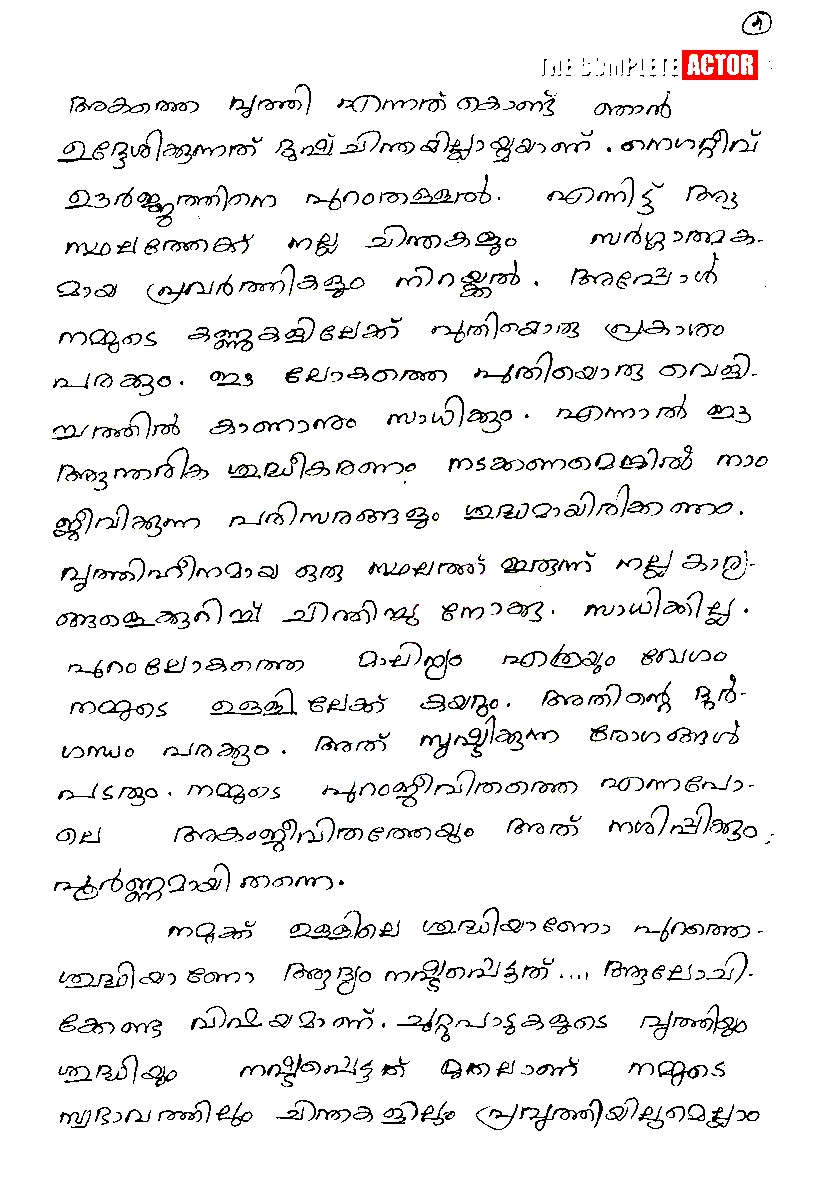 THE COMPLETE ACTOR
അകത്തെ വൃത്തി എന്നത് കൊണ്ട് ഞാൻ
ഉദ്ദേശിക്കുന്നത് ദുഷ് ചിന്തയില്ലായ്മയാണ്. നെഗറ്റീവ്
ഊർജ്ജത്തിനെ പുറംതള്ളൽ. എന്നിട്ട് ആ
സ്ഥലത്തേക്ക് നല്ല ചിന്തകളും സർഗ്ഗാത്മക-
മായ പ്രവർത്തികളും നിറയ്ക്കൽ. അപ്പോൾ
നമ്മുടെ കണ്ണുകളിലേക്ക് പുതിയൊരു പ്രകാശം
പരക്കും. ഈ ലോകത്തെ പുതിയൊരു വെളി-
ച്ചത്തിൽ കാണാനും സാധിക്കും. എന്നാൽ ഈ
ആന്തരിക ശുദ്ധീകരണം നടക്കണമെങ്കിൽ നാം
ജീവിക്കുന്ന പരിസരങ്ങളും ശുദ്ധമായിരിക്കണം.
വൃത്തിഹീനമായ ഒരു സ്ഥലത്ത് ഇരുന്ന് നല്ല കാര്യ-
ങ്ങളെക്കുറിച്ച് ചിന്തിച്ചു നോക്കൂ. സാധിക്കില്ല.
പുറംലോകത്തെ മാലിന്യം എത്രയും വേഗം
നമ്മുടെ ഉള്ളിലേക്ക് കയറും. അതിന്റെ ദുർ-
ഗന്ധം പരക്കും. അത് സൃഷ്ടിക്കുന്ന രോഗങ്ങൾ
പടരും. നമ്മുടെ പുറംജീവിതത്തെ എന്നപോ-
ലെ അകംജീവിതത്തേയും അത് നശിപ്പിക്കും,
പൂർണ്ണമായി തന്നെ.
നമുക്ക് ഉള്ളിലെ ശുദ്ധിയാണോ പുറത്തെ-
ശുദ്ധിയാണോ ആദ്യം നഷ്ടപ്പെട്ടത് .... ആലോചി-
ക്കേണ്ട വിഷയമാണ്. ചുറ്റുപാടുകളുടെ വൃത്തിയും
ശുദ്ധിയും നഷ്ടപ്പെട്ടത് മുതലാണ് നമ്മുടെ
സ്വഭാവത്തിലും ചിന്തകളിലും പ്രവൃത്തിയിലുമെല്ലാം